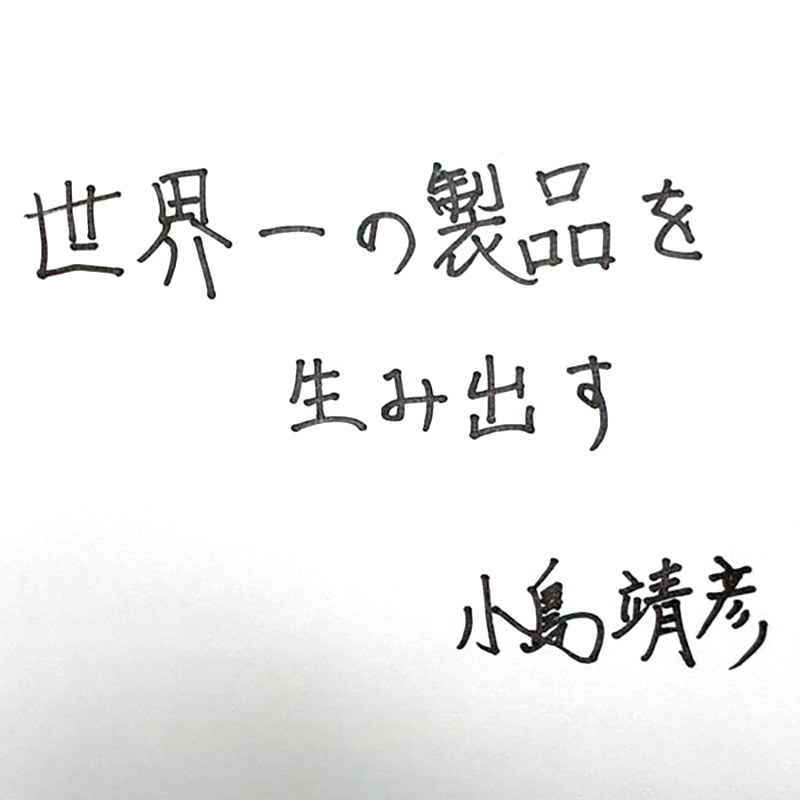 世界一の製品を
生み出す
小島靖彦